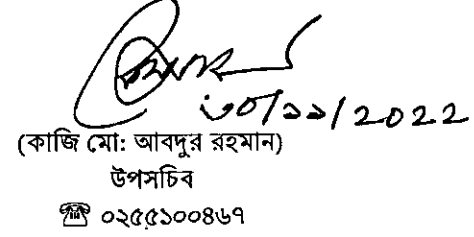 ৩০/১১/2022
(কাজি মো: আবদুর রহমান)
উপসচিব
☎ ০২৫৫১০০৪৬৭